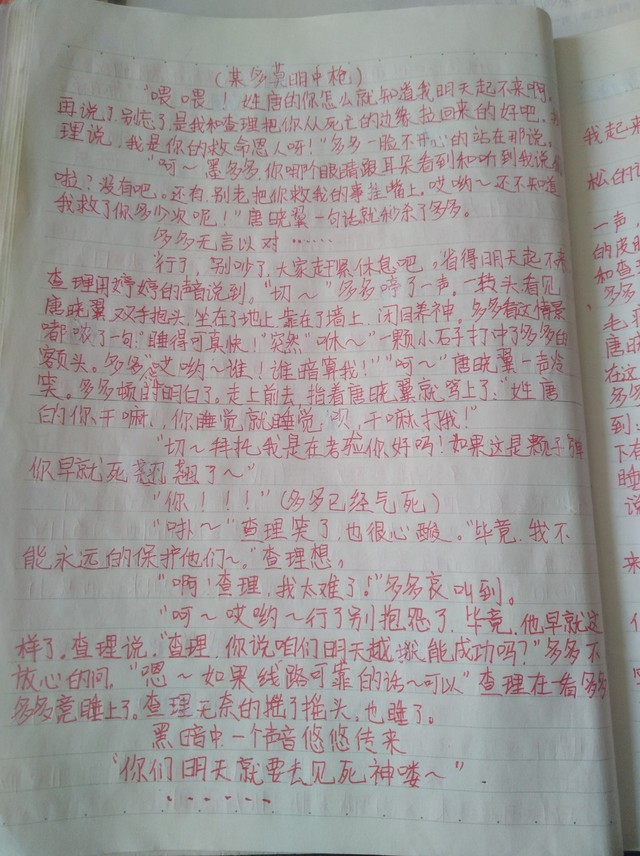 （某多莫明中枪）
“喂喂！姓唐的你怎么就知道我明天起不来啊。
再说了，别忘了是我和查理把你从死亡的边缘拉回来的好吧，按
理说，我是你的救命恩人呀！”多多一脸不开心的站在那说。
“呵～墨多多，你哪个眼睛跟耳朵看到和听到我说你
啦？没有吧。还有，别老把你救我的事挂嘴上，哎哟～还不知道
我救了你多少次呢！”唐晓翼一句话就秒杀了多多。
多多无言以对……
“行了，别吵了，大家赶紧休息吧，省得明天起不来
查理用婷婷的声音说到。“切～”多多哼了一声。一抬头看见
唐晓翼双手抱头，坐在了地上，靠在了墙上，闭目养神。多多看这情景
嘟哝了一句：“睡得可真快！”突然“咻～”一颗小石子打中了多多的
额头。多多“哎哟～谁！谁暗算我！”“呵～”唐晓翼一声冷
笑。多多顿时明白了。走上前去，指着唐晓翼就骂上了：“姓唐
的你干嘛，你睡觉就睡觉呗，干嘛打我！”
“切～拜托我是在考验你好吗！如果这是颗子弹
你早就死翘翘了～”
“你！！！”（多多已经气死）
“哧～“查理笑了，也很心酸。“毕竟，我不
能永远的保护他们～。”查理想，
“啊！查理，我太难了！”多多哀叫到。
“呵～哎哟～行了别抱怨了，毕竟，他早就这
样了。查理说。“查理，你说咱们明天越狱能成功吗？”多多不
放心的问。“嗯～如果线路可靠的话～可以”查理在看多多
多多竟睡上了。查理无奈的摇了摇头，也睡了。
黑暗中一个声音悠悠传来
“你们明天就要去见死神喽～”
……
我起来
松的说
一声，
的皮
和查
多多
毛
唐晓
在这
多多
到：
下有
睡
说
来